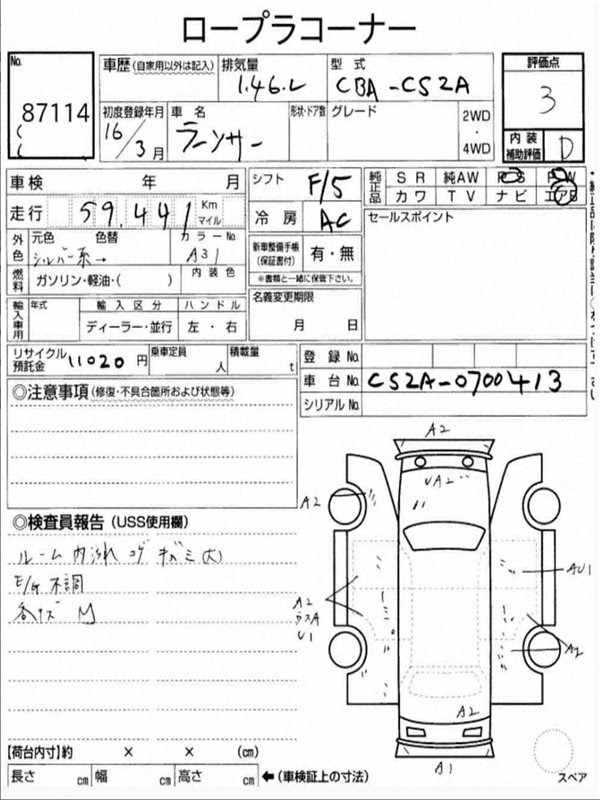 ロープラコーナー
No. 87114
車歴 (自家用以外は記入)
排気量 1.46.L
型式 CBA-CS2A
評価点 3
初度登録年月 16/3月
車名 ランサー
形状・ドア数
グレード
2WD・4WD
内装補助評価 D
車検 年 月
シフト F/5
純正品 SR 純AW PS PW
カワ TV ナビ エアB
走行 59,441 Km マイル
冷房 AC
セールスポイント
外色 元色 色替 カラーNo.
シルバー系→ A31
新車整備手帳(保証書付) 有・無
※書類と一緒に保管下さい。
燃料 ガソリン・軽油・( ) 内装色
名義変更期限
月 日
輸入車用 年式 輸入区分 ハンドル
ディーラー・並行 左・右
リサイクル預託金 11020円
乗車定員 人
積載量 t
登録No.
車台No. CS2A-0700413
シリアルNo.
◎注意事項 (修復・不具合箇所および状態等)
◎検査員報告 (USS使用欄)
ルーム内汚れ コゲ キズミ(大)
E/G不調
各キズ M
A2
UA2
A2
A2
A1
AU1
A2
U1
A2
【荷台内寸】約 × × (cm)
長さ cm 幅 cm 高さ cm ←(車検証上の寸法)
スペア